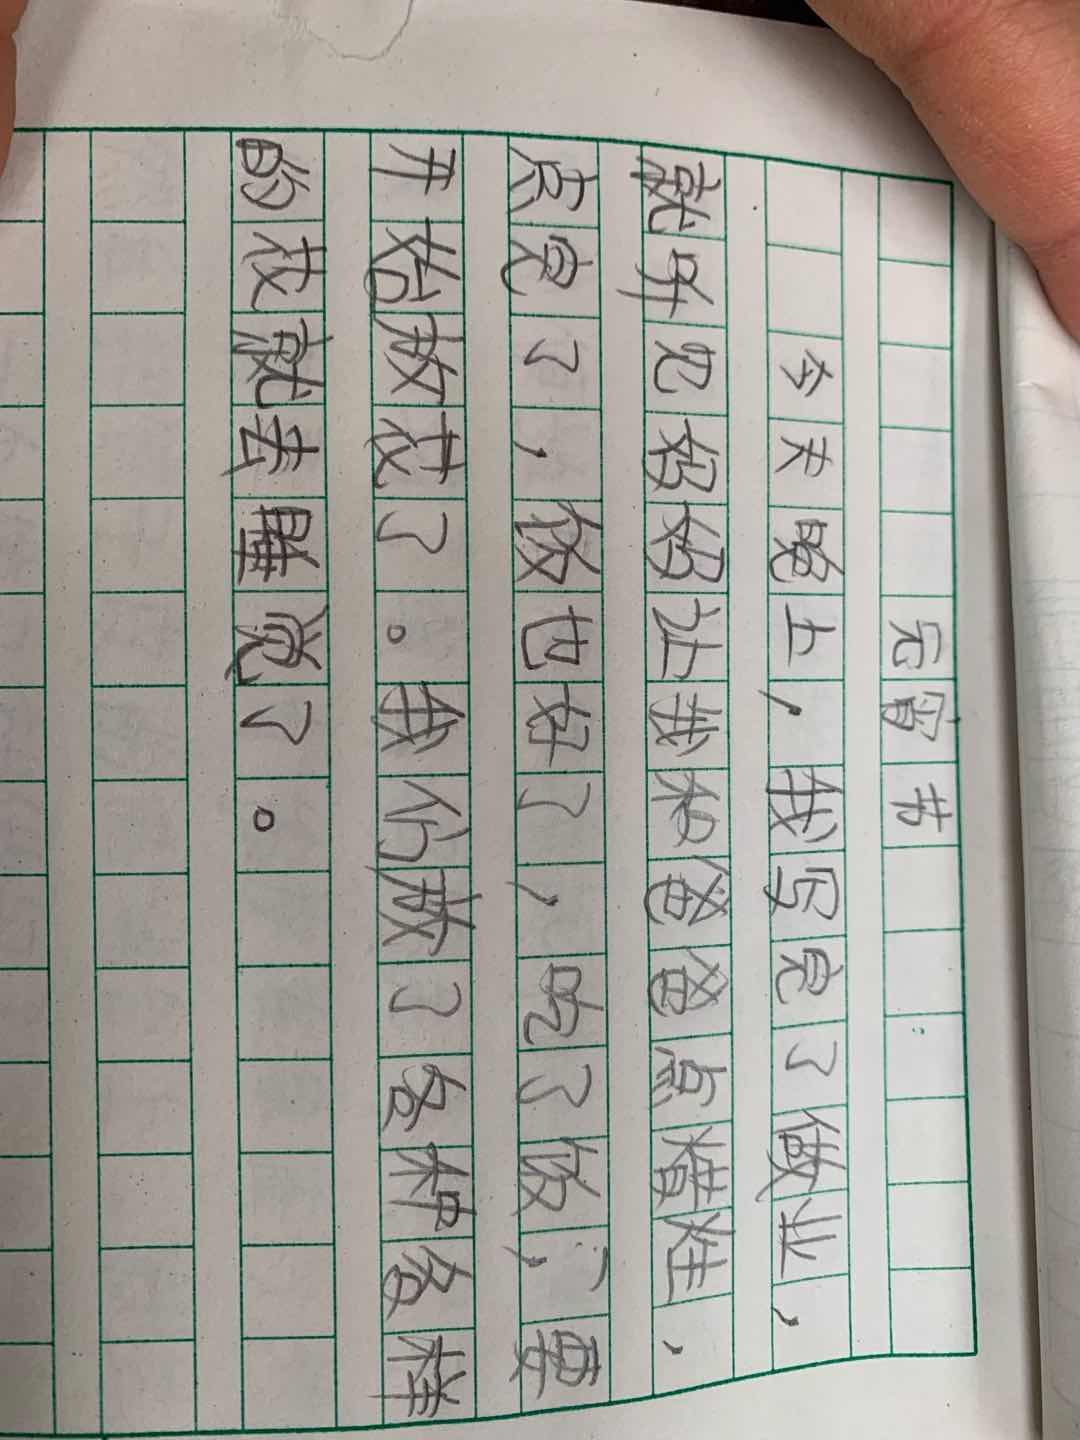 元宵节
今天晚上，我写完了做业，
就听见奶奶让我和爸爸点蜡烛，
点完了，饭也好了，吃了饭，要
开始放花了。我们放了各种各样
的花就去睡觉了。